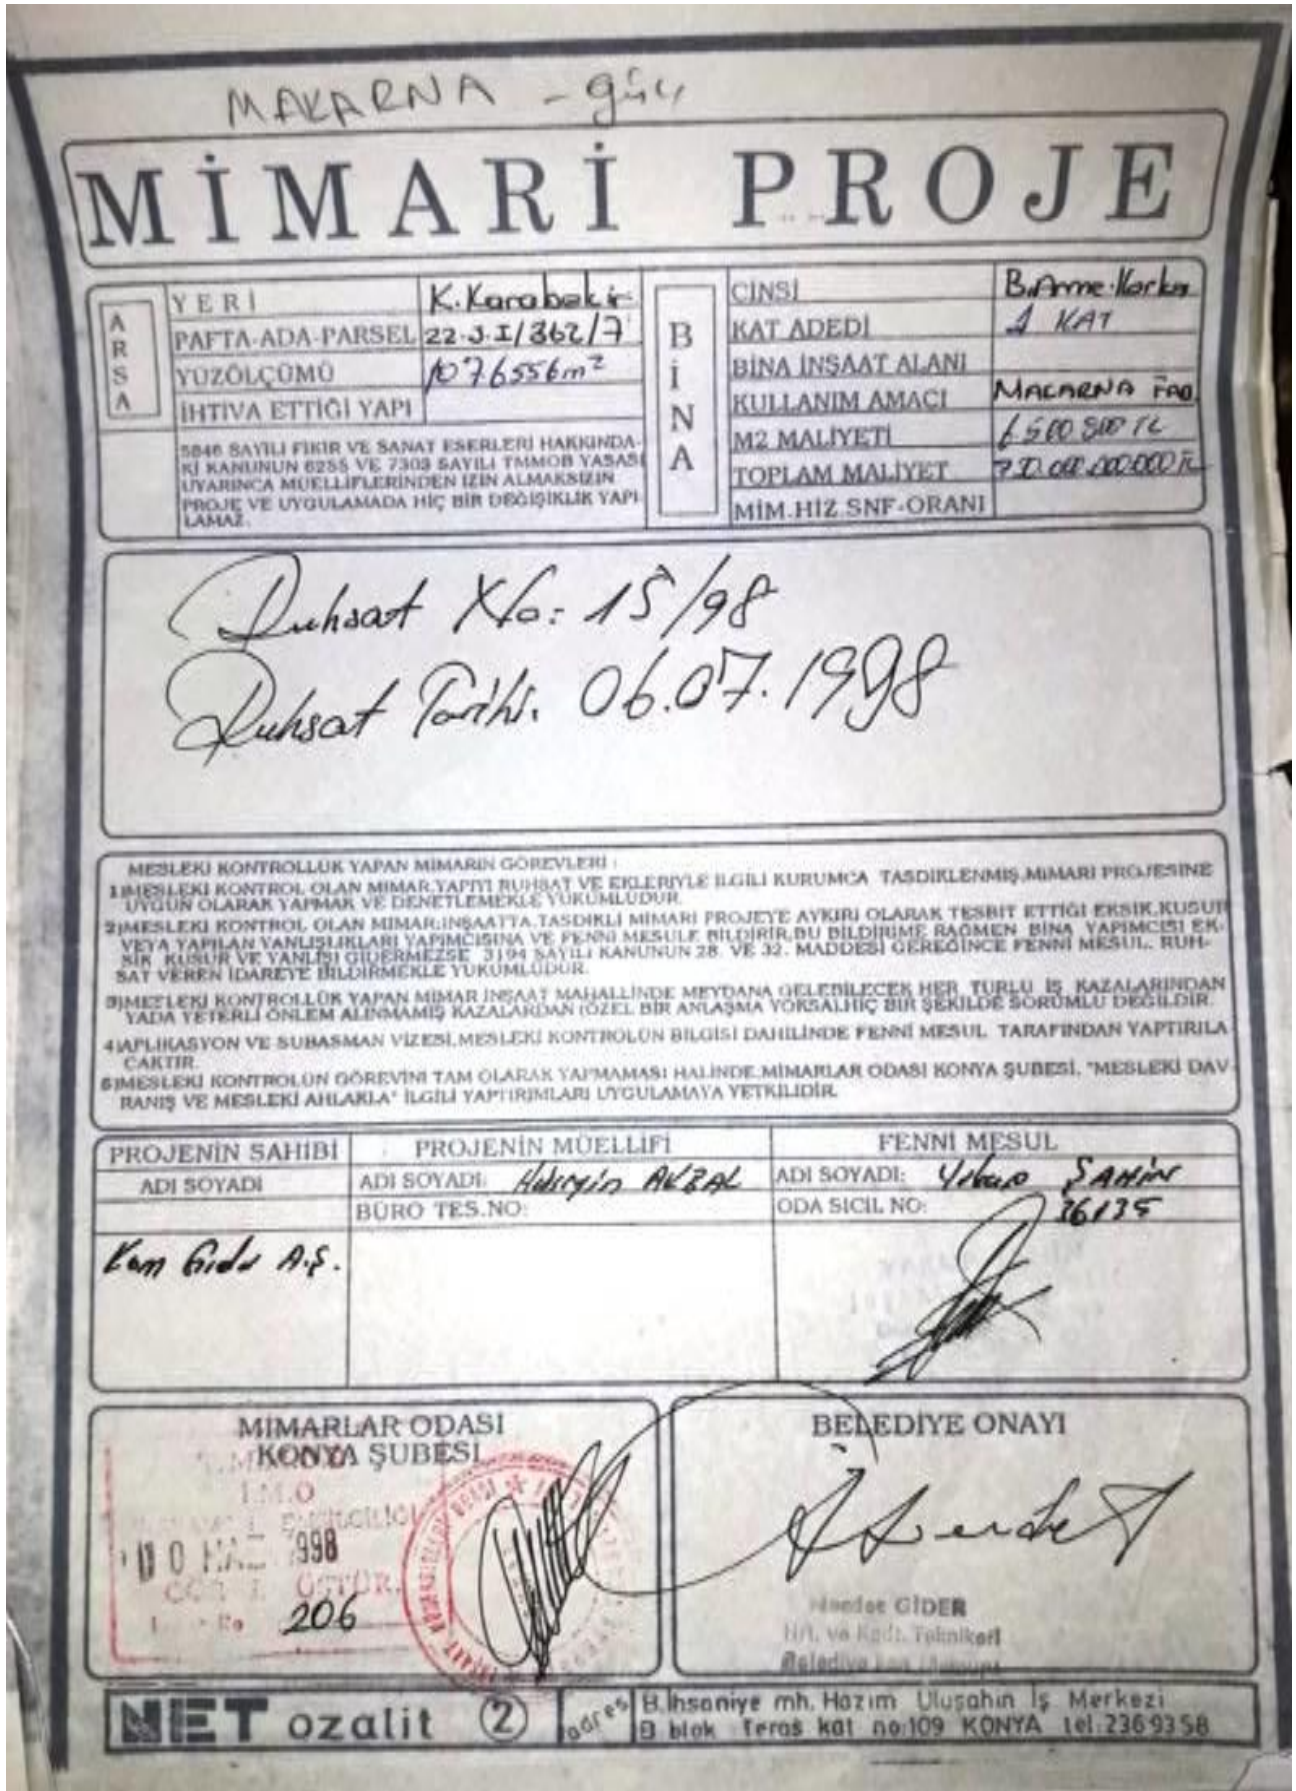 MAKARNA -
MİMARİ PROJE
ARSA
YERİ K.Karabekir
PAFTA-ADA-PARSEL 22-J-I/362/7
YÜZÖLÇÜMÜ 1076556m²
İHTİVA ETTİĞİ YAPI
5846 SAYILI FIKIR VE SANAT ESERLERİ HAKKINDA-
KI KANUNUN 6235 VE 7303 SAYILI TMMOB YASASI
UYARINCA MUELLIFLERINDEN IZIN ALMAKSIZIN
PROJE VE UYGULAMADA HIÇ BIR DEĞIŞIKLIK YAPI-
LAMAZ.
BİNA
CİNSİ
KAT ADEDİ 1 KAT
BİNA İNŞAAT ALANI
KULLANIM AMACI MACARNA FAB.
M2 MALİYETİ
TOPLAM MALİYET
MİM.HİZ.SNF-ORANI
Ruhsat No: 15/98
Ruhsat Tarihi. 06.07.1998
MESLEKI KONTROLLUK YAPAN MIMARIN GÖREVLERI :
1)MESLEKI KONTROL OLAN MIMAR,YAPIYI RUHSAT VE EKLERIYLE ILGILI KURUMCA TASDIKLENMIŞ,MIMARI PROJESINE
UYGUN OLARAK YAPMAK VE DENETLEMEKLE YUKUMLUDUR.
2)MESLEKI KONTROL OLAN MIMAR;INŞAATTA,TASDIKLI MIMARI PROJEYE AYKIRI OLARAK TESBIT ETTIĞI EKSIK,KUSUR
VEYA YAPILAN YANLIŞLIKLARI YAPIMCISINA VE FENNI MESULE BILDIRIR,BU BILDIRIME RAĞMEN BINA YAPIMCISI EK-
SIK KUSUR VE YANLIŞI GIDERMEZSE 3194 SAYILI KANUNUN 28. VE 32. MADDESI GEREĞINCE FENNI MESUL, RUH-
SAT VEREN IDAREYE BILDIRMEKLE YUKUMLUDUR.
3)MESLEKI KONTROLLÜK YAPAN MIMAR INŞAAT MAHALLINDE MEYDANA GELEBILECEK HER TURLU IŞ KAZALARINDAN
YADA YETERLI ÖNLEM ALINMAMIŞ KAZALARDAN (ÖZEL BIR ANLAŞMA YOKSA)HIÇ BIR ŞEKILDE SORUMLU DEĞILDIR.
4)APLIKASYON VE SUBASMAN VIZESI,MESLEKI KONTROLUN BILGISI DAHILINDE FENNI MESUL TARAFINDAN YAPTIRILA
CAKTIR.
5)MESLEKI KONTROLUN GÖREVINI TAM OLARAK YAPMAMASI HALINDE,MIMARLAR ODASI KONYA ŞUBESI, "MESLEKI DAV
RANIŞ VE MESLEKI AHLAKLA" ILGILI YAPTIRIMLARI UYGULAMAYA YETKILIDIR.
PROJENİN SAHİBİ PROJENİN MÜELLİFİ FENNİ MESUL
ADI SOYADI ADI SOYADI: Hüseyin AKBAL ADI SOYADI: Yakup ŞAHİN
BÜRO TES.NO: ODA SICIL NO: 36135
Kom Gıda A.Ş.
MIMARLAR ODASI
KONYA ŞUBESİ
İ.M.O
10 HAZ 1998
206
BELEDİYE ONAYI
GİDER
Hrt. ve Kads. Teknikeri
NET ozalit 2
adres B.İhsaniye mh. Hazım Uluşahin İş Merkezi
B blok Teras kat no:109 KONYA tel:236 93 58